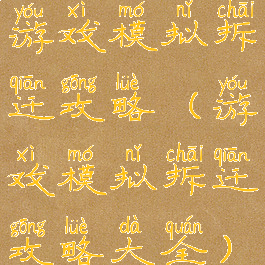 yóu xì mó nǐ chāi
游戏模拟拆
qiān gōng lüè yóu
迁攻略（游
xì mó nǐ chāi qiān
戏模拟拆迁
gōng lüè dà quán
攻略大全）